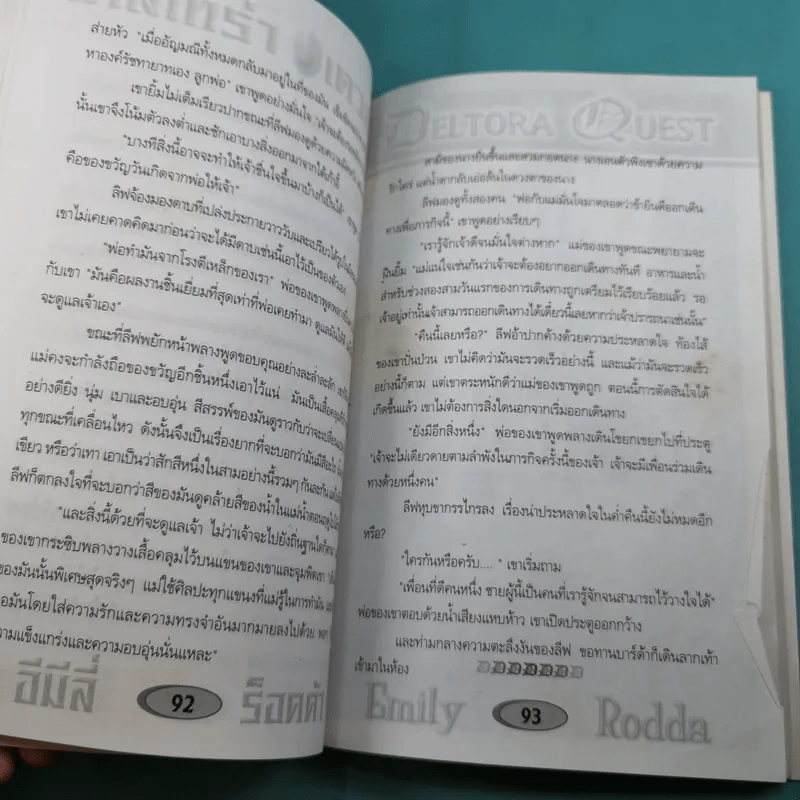 ส่ายหัว "เมื่ออัญมณีทั้งหมดกลับมาอยู่ในที่ของมัน
หาองค์รัชทายาทเอง ลูกพ่อ" เขาพูดอย่างมั่นใจ
เขายิ้มไม่เต็มเรียวปากขณะที่ลีฟมองดูด้วยความ
นั้นเขาจึงโน้มตัวลงต่ำและชักเอาบางสิ่งออกมาจากใต้เก้าอี้
"บางทีสิ่งนี้อาจจะทำให้เจ้าชื่นใจขึ้นมาบ้างก็เป็นได้
คือของขวัญวันเกิดจากพ่อให้เจ้า"
ลีฟจ้องมองดาบที่เปล่งประกายวาววับและเปรียบได้
เขาไม่เคยคาดคิดมาก่อนว่าจะได้มีดาบเช่นนี้เอาไว้เป็นของตัวเอง
"พ่อทำมันจากโรงตีเหล็กของเรา" พ่อของเขาพูด
กับเขา "มันคือผลงานชิ้นเยี่ยมที่สุดเท่าที่พ่อเคยทำมา ดูแลมันให้ดี
จะดูแลเจ้าเอง"
ขณะที่ลีฟพยักหน้าพลางพูดขอบคุณอย่างละล่ำละลัก
แม่คงจะกำลังถือของขวัญอีกชิ้นหนึ่งเอาไว้แน่ มันเป็นเสื้อคลุม
อย่างดียิ่ง นุ่ม เบาและอบอุ่น สีสรรพ์ของมันดูราวกับว่าจะเปลี่ยน
ทุกขณะที่เคลื่อนไหว ดังนั้นจึงเป็นเรื่องยากที่จะบอกว่ามันมีสีอะไร
เขียว หรือว่าเทา เอาเป็นว่าสักสีหนึ่งในสามอย่างนี้รวมๆ กันละกัน
ลีฟก็ตกลงใจที่จะบอกว่าสีของมันดูคล้ายสีของน้ำในแม่น้ำตอนฤดู
"และสิ่งนี้ด้วยที่จะดูแลเจ้า ไม่ว่าเจ้าจะไปยังถิ่นฐานใดก็ตาม"
ของเขากระซิบพลางวางเสื้อคลุมไว้บนแขนของเขาและจุมพิตเขา
ของมันนั้นพิเศษสุดจริงๆ แม่ใช้ศิลปะทุกแขนงที่แม่รู้ในการทำมัน
อมันโดยใส่ความรักและความทรงจำอันมากมายลงไปด้วย
วามแข็งแกร่งและความอบอุ่นนั่นแหละ"
อีมีลี่ 92 ร็อดด้า
DELTORA QUEST
สามีของนางยืนขึ้นและสวมกอดนาง นางเอนตัวพิงเขาด้วยความ
รักใคร่ แต่น้ำตากลับเอ่อล้นในดวงตาของนาง
ลีฟมองดูทั้งสองคน "พ่อกับแม่มั่นใจมาตลอดว่าข้ายินดีออกเดิน
ทางเพื่อภารกิจนี้" เขาพูดอย่างเรียบๆ
"เรารู้จักเจ้าดีจนมั่นใจต่างหาก" แม่ของเขาพูดขณะพยายามจะ
ฝืนยิ้ม "แม่แน่ใจเช่นกันว่าเจ้าจะต้องอยากออกเดินทางทันที อาหารและน้ำ
สำหรับช่วงสองสามวันแรกของการเดินทางถูกเตรียมไว้เรียบร้อยแล้ว รอ
เจ้าอยู่เท่านั้นเจ้าสามารถออกเดินทางได้เดี๋ยวนี้เลยหากว่าเจ้าปรารถนาเช่นนั้น"
"คืนนี้เลยหรือ?" ลีฟอ้าปากค้างด้วยความประหลาดใจ ท้องไส้
ของเขาปั่นป่วน เขาไม่คิดว่ามันจะรวดเร็วอย่างนี้ และแม้ว่ามันจะรวดเร็ว
อย่างนี้ก็ตาม แต่เขาตระหนักดีว่าแม่ของเขาพูดถูก ตอนนี้การตัดสินใจได้
เกิดขึ้นแล้ว เขาไม่ต้องการสิ่งใดนอกจากเริ่มออกเดินทาง
"ยังมีอีกสิ่งหนึ่ง" พ่อของเขาพูดพลางเดินโขยกเขยกไปที่ประตู
"เจ้าจะไม่เดียวดายตามลำพังในภารกิจครั้งนี้ของเจ้า เจ้าจะมีเพื่อนร่วมเดิน
ทางด้วยหนึ่งคน"
ลีฟหุบขากรรไกรลง เรื่องน่าประหลาดใจในค่ำคืนนี้ยังไม่หมดอีก
หรือ?
"ใครกันหรือครับ...." เขาเริ่มถาม
"เพื่อนที่ดีคนหนึ่ง ชายผู้นี้เป็นคนที่เรารู้จักจนสามารถไว้วางใจได้"
พ่อของเขาตอบด้วยน้ำเสียงแหบห้าว เขาเปิดประตูออกกว้าง
และท่ามกลางความตะลึงงันของลีฟ ขอทานบาร์ด้าก็เดินลากเท้า
เข้ามาในห้อง DDDDDDD
Emily 93 Rodda